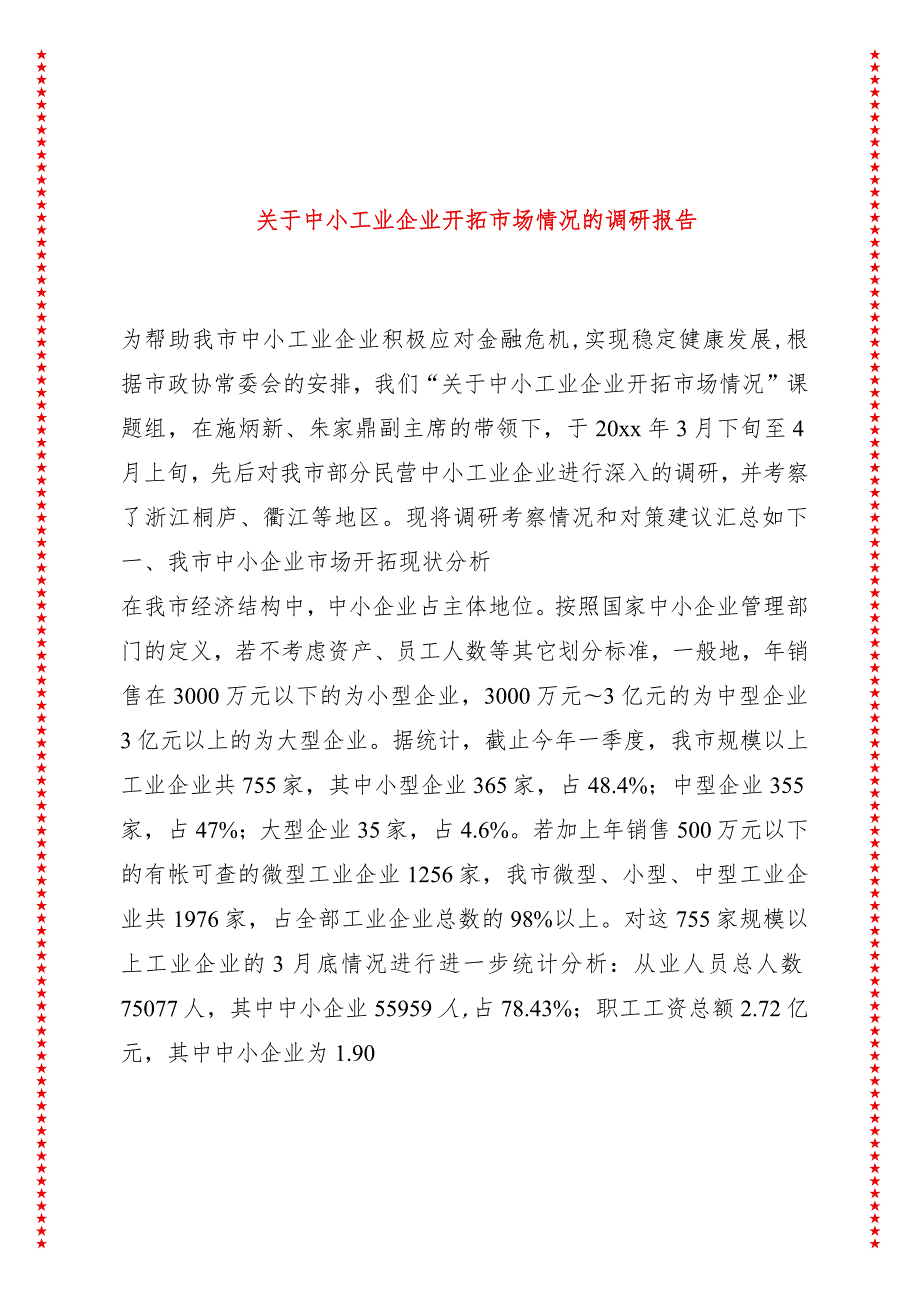 关于中小工业企业开拓市场情况的调研报告
为帮助我市中小工业企业积极应对金融危机,实现稳定健康发展,根
据市政协常委会的安排，我们“关于中小工业企业开拓市场情况”课
题组，在施炳新、朱家鼎副主席的带领下，于 20xx 年 3 月下旬至 4
月上旬，先后对我市部分民营中小工业企业进行深入的调研，并考察
了浙江桐庐、衢江等地区。现将调研考察情况和对策建议汇总如下
一、我市中小企业市场开拓现状分析
在我市经济结构中，中小企业占主体地位。按照国家中小企业管理部
门的定义，若不考虑资产、员工人数等其它划分标准，一般地，年销
售在 3000 万元以下的为小型企业，3000 万元～3 亿元的为中型企业
3 亿元以上的为大型企业。据统计，截止今年一季度，我市规模以上
工业企业共 755 家，其中小型企业 365 家，占 48.4%；中型企业 355
家，占 47%；大型企业 35 家，占 4.6%。若加上年销售 500 万元以下
的有帐可查的微型工业企业 1256 家，我市微型、小型、中型工业企
业共 1976 家，占全部工业企业总数的 98%以上。对这 755 家规模以
上工业企业的 3 月底情况进行进一步统计分析：从业人员总人数
75077 人，其中中小企业 55959 人,占 78.43%；职工工资总额 2.72 亿
元，其中中小企业为 1.90